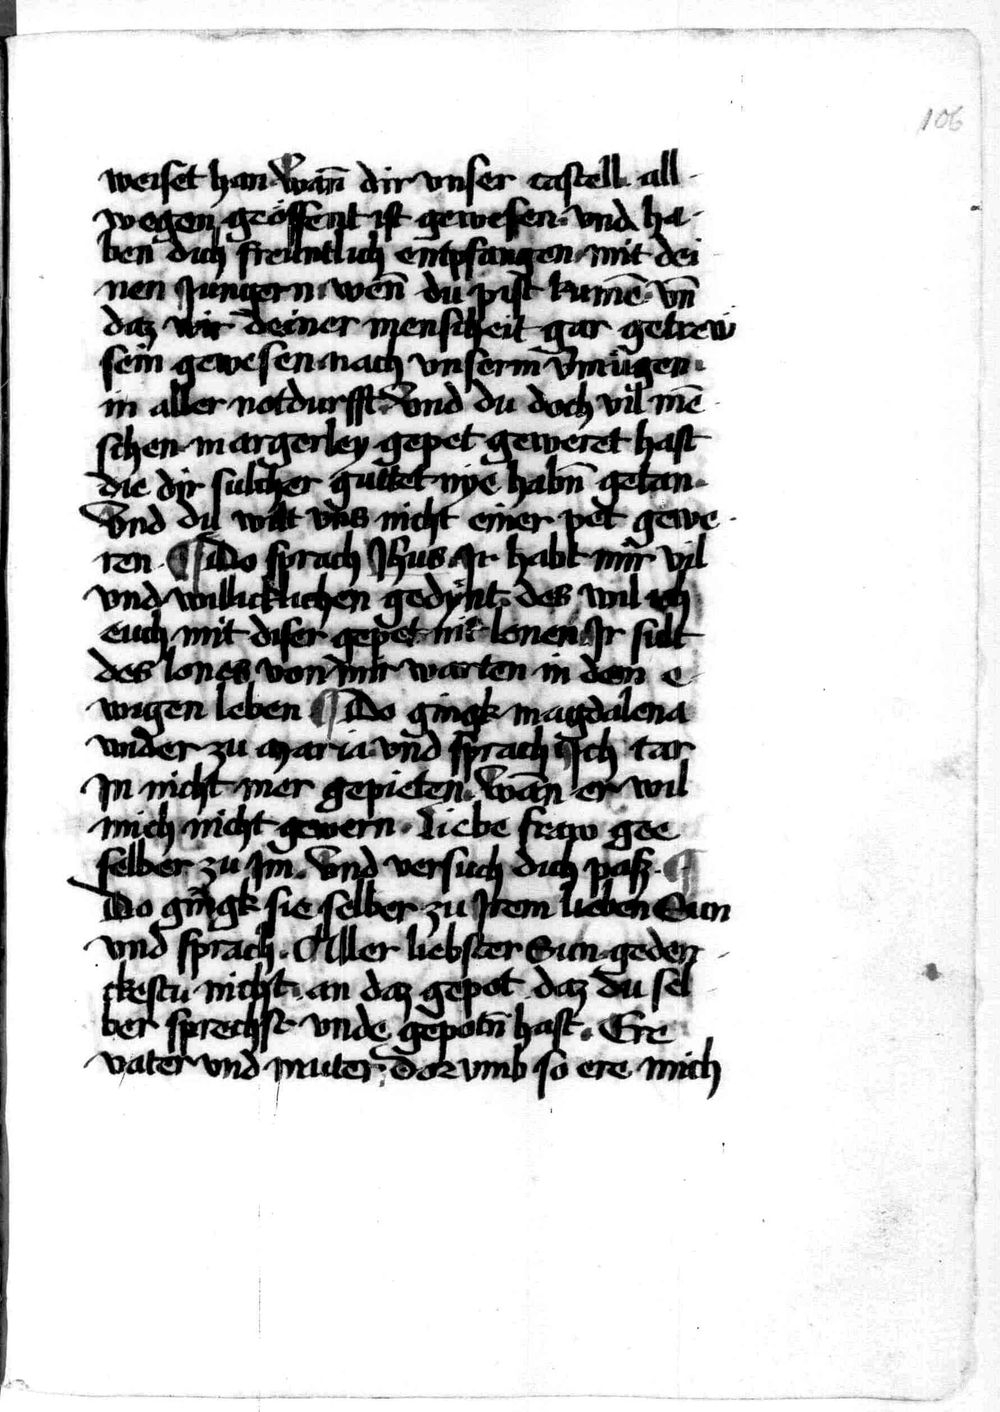 106
weiset han. Wañ dir vnser castell all
wegen geöffent ist gewesen. vnd ha
ben dich freuntlich entpfangen. mit dei
nen Jungern. wen̄ du pist kumē. vn̄
daz wir deiner menscheit gar getrew
sein gewesen. nach vnserm v̄mügen.
in aller notdurfft. Vnd du doch vil mē
schen margerley gepet geweret hast
die dir sulcher guttet nye habn̄ getan.
Vnd du wilt vns nicht einer pet gewe
ren ¶ Do sprach Jhus. Ir habt mir vil
vnd willicklichen gedynt. des wil ich
euch mit diser gepet nit lonen. Ir sult
des lones von mir warten in dem e
wigen leben ¶ Do gingk magdalena
wider zu maria vnd sprach Ich tar
In nicht mer gepieten. Wan̄ er wil
mich nicht gewern. Liebe fraw gee
selber zu Im. Vnd versuch dich paß. ¶
Do gingk sie selber zu Irem lieben Sun
vnd sprach. Aller liebster Sun geden
ckestu nicht. an daz gepot daz du sel
ber sprechst vnde gepotn̄ hast. Ere
vater vnd muter. dor vmb so ere mich